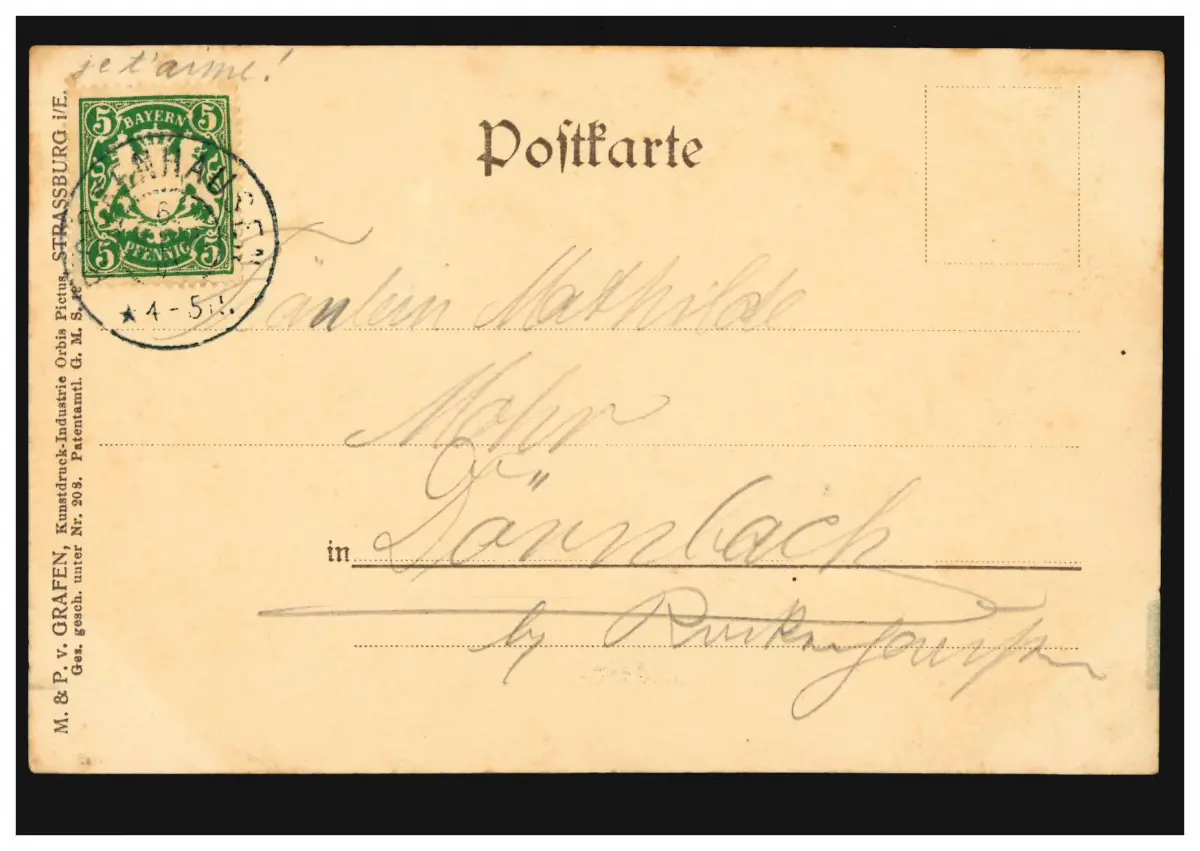 je t'aime!
5 BAYERN 5
5 PFENNIG 5
★ 4-5 N.
Postkarte
Fräulein Mathilde
Mohr
in Dörnbach
by Rockenhausen
M. & P. v. GRAFEN, Kunstdruck-Industrie Orbis Pictus, STRASSBURG i/E.
Ges. gesch. unter Nr. 208. Patentamtl. G. M. S.